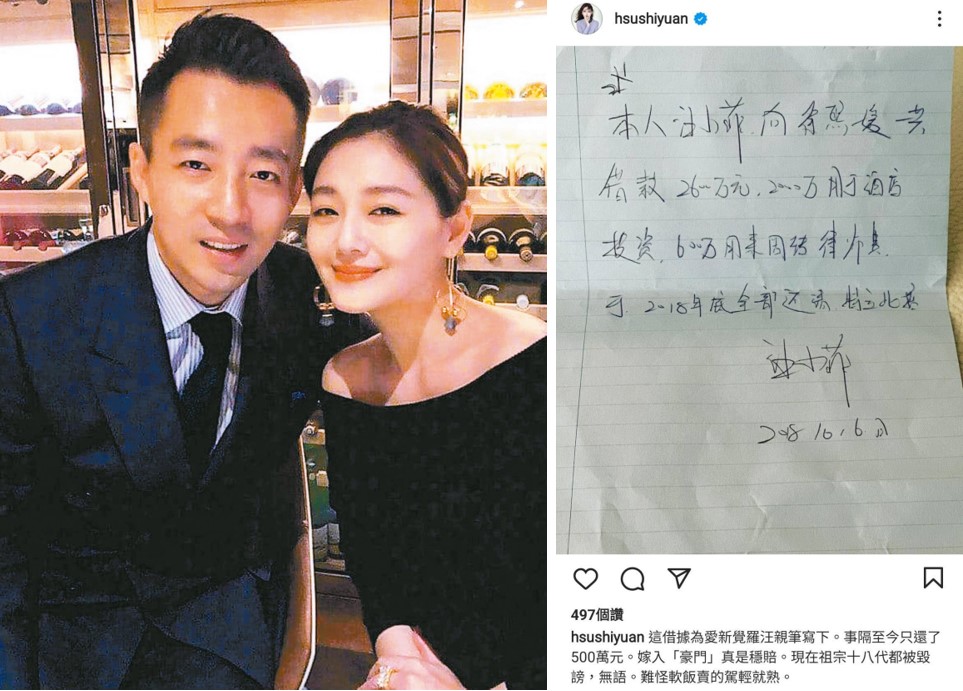 hsushiyuan
本人汪小菲,向徐熙媛共
借款 2600万元,2000万用于酒店
投资,600万用来周转
于 2018年底全部还清 特立此据
汪小菲
2018.10.6日
497個讚
hsushiyuan 這借據為愛新覺羅汪親筆寫下。事隔至今只還了
500萬元。嫁入「豪門」真是穩賠。現在祖宗十八代都被毀
謗，無語。難怪軟飯賣的駕輕就熟。